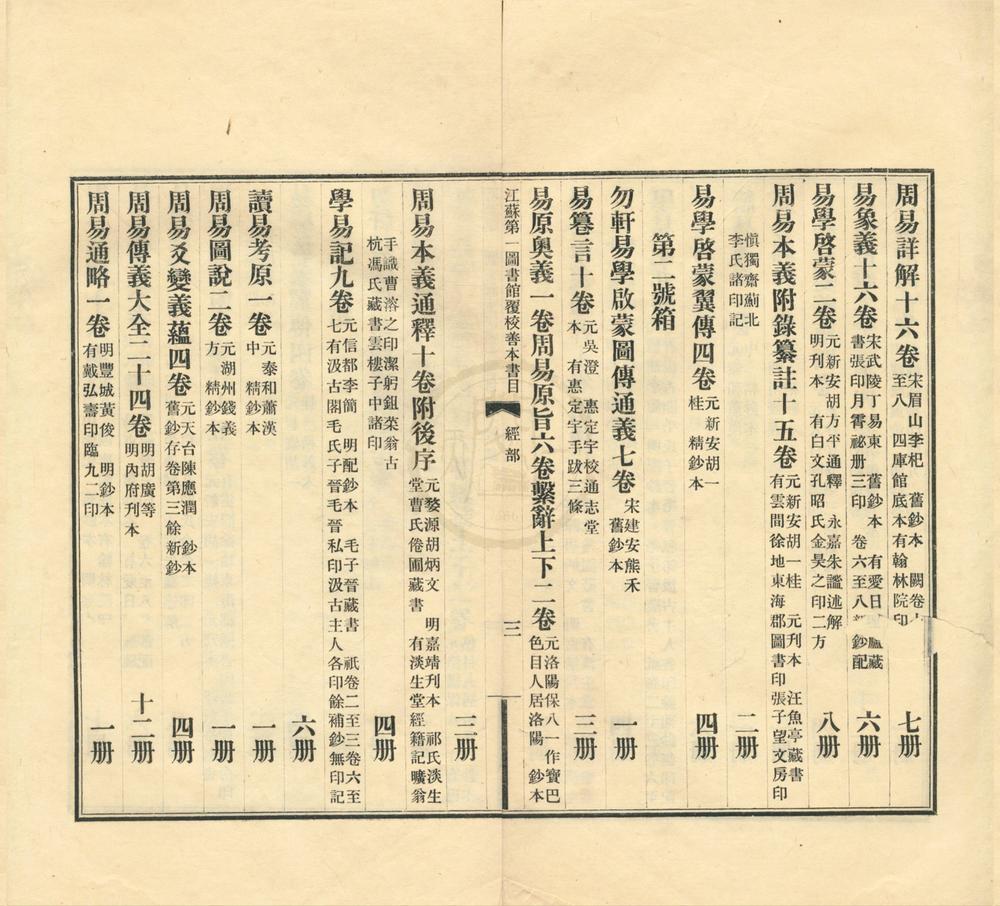 周易詳解十六卷 宋眉山李杞 舊鈔本 闕卷 至八 四庫館底本有翰林院印 七册
易象義十六卷 宋武陵丁易東 舊鈔本 有愛日 廬藏 書張印月霄祕册三印 卷六至八 鈔配 六册
易學啓蒙二卷 元新安胡方平通釋 永嘉朱謐述解 明刊本 有白文孔昭氏金昊之印二方 八册
周易本義附錄纂註十五卷 元新安胡一桂 元刊本 汪魚亭藏書 有雲間徐地東海郡圖書印張子望文房印
愼獨齋薊北 李氏諸印記 二册
易學啓蒙翼傳四卷 元新安胡一 桂 精鈔本 四册
第二號箱
勿軒易學啟蒙圖傳通義七卷 宋建安熊禾 舊鈔本 一册
易纂言十卷 元吳澄 惠定宇校通志堂 本 有惠定宇手跋三條 三册
易原奧義一卷周易原旨六卷繫辭上下二卷 元洛陽保八一作寶巴 色目人居洛陽 鈔本
江蘇第一圖書館覆校善本書目 經部 三
三册
周易本義通釋十卷附後序 元婺源胡炳文 明嘉靖刊本 祁氏淡生 堂曹氏倦圃藏書 有淡生堂經籍記曠翁
手識曹溶之印潔躬鉏菜翁古 杭馮氏藏書雲樓子中諸印 四册
學易記九卷 元信都李簡 明配鈔本 毛子晉藏書 祇卷二至三卷六至 七有汲古閣毛氏子晉毛晉私印汲古主人各印餘補鈔無印記
六册
讀易考原一卷 元泰和蕭漢 中 精鈔本 一册
周易圖說二卷 元湖州錢義 方 精鈔本 一册
周易爻變義蘊四卷 元天台陳應潤 鈔本 舊鈔存卷第三餘新鈔 四册
周易傳義大全二十四卷 明胡廣等 明內府刊本 十二册
周易通略一卷 明豐城黃俊 明鈔本 有戴弘壽印臨九二印 一册